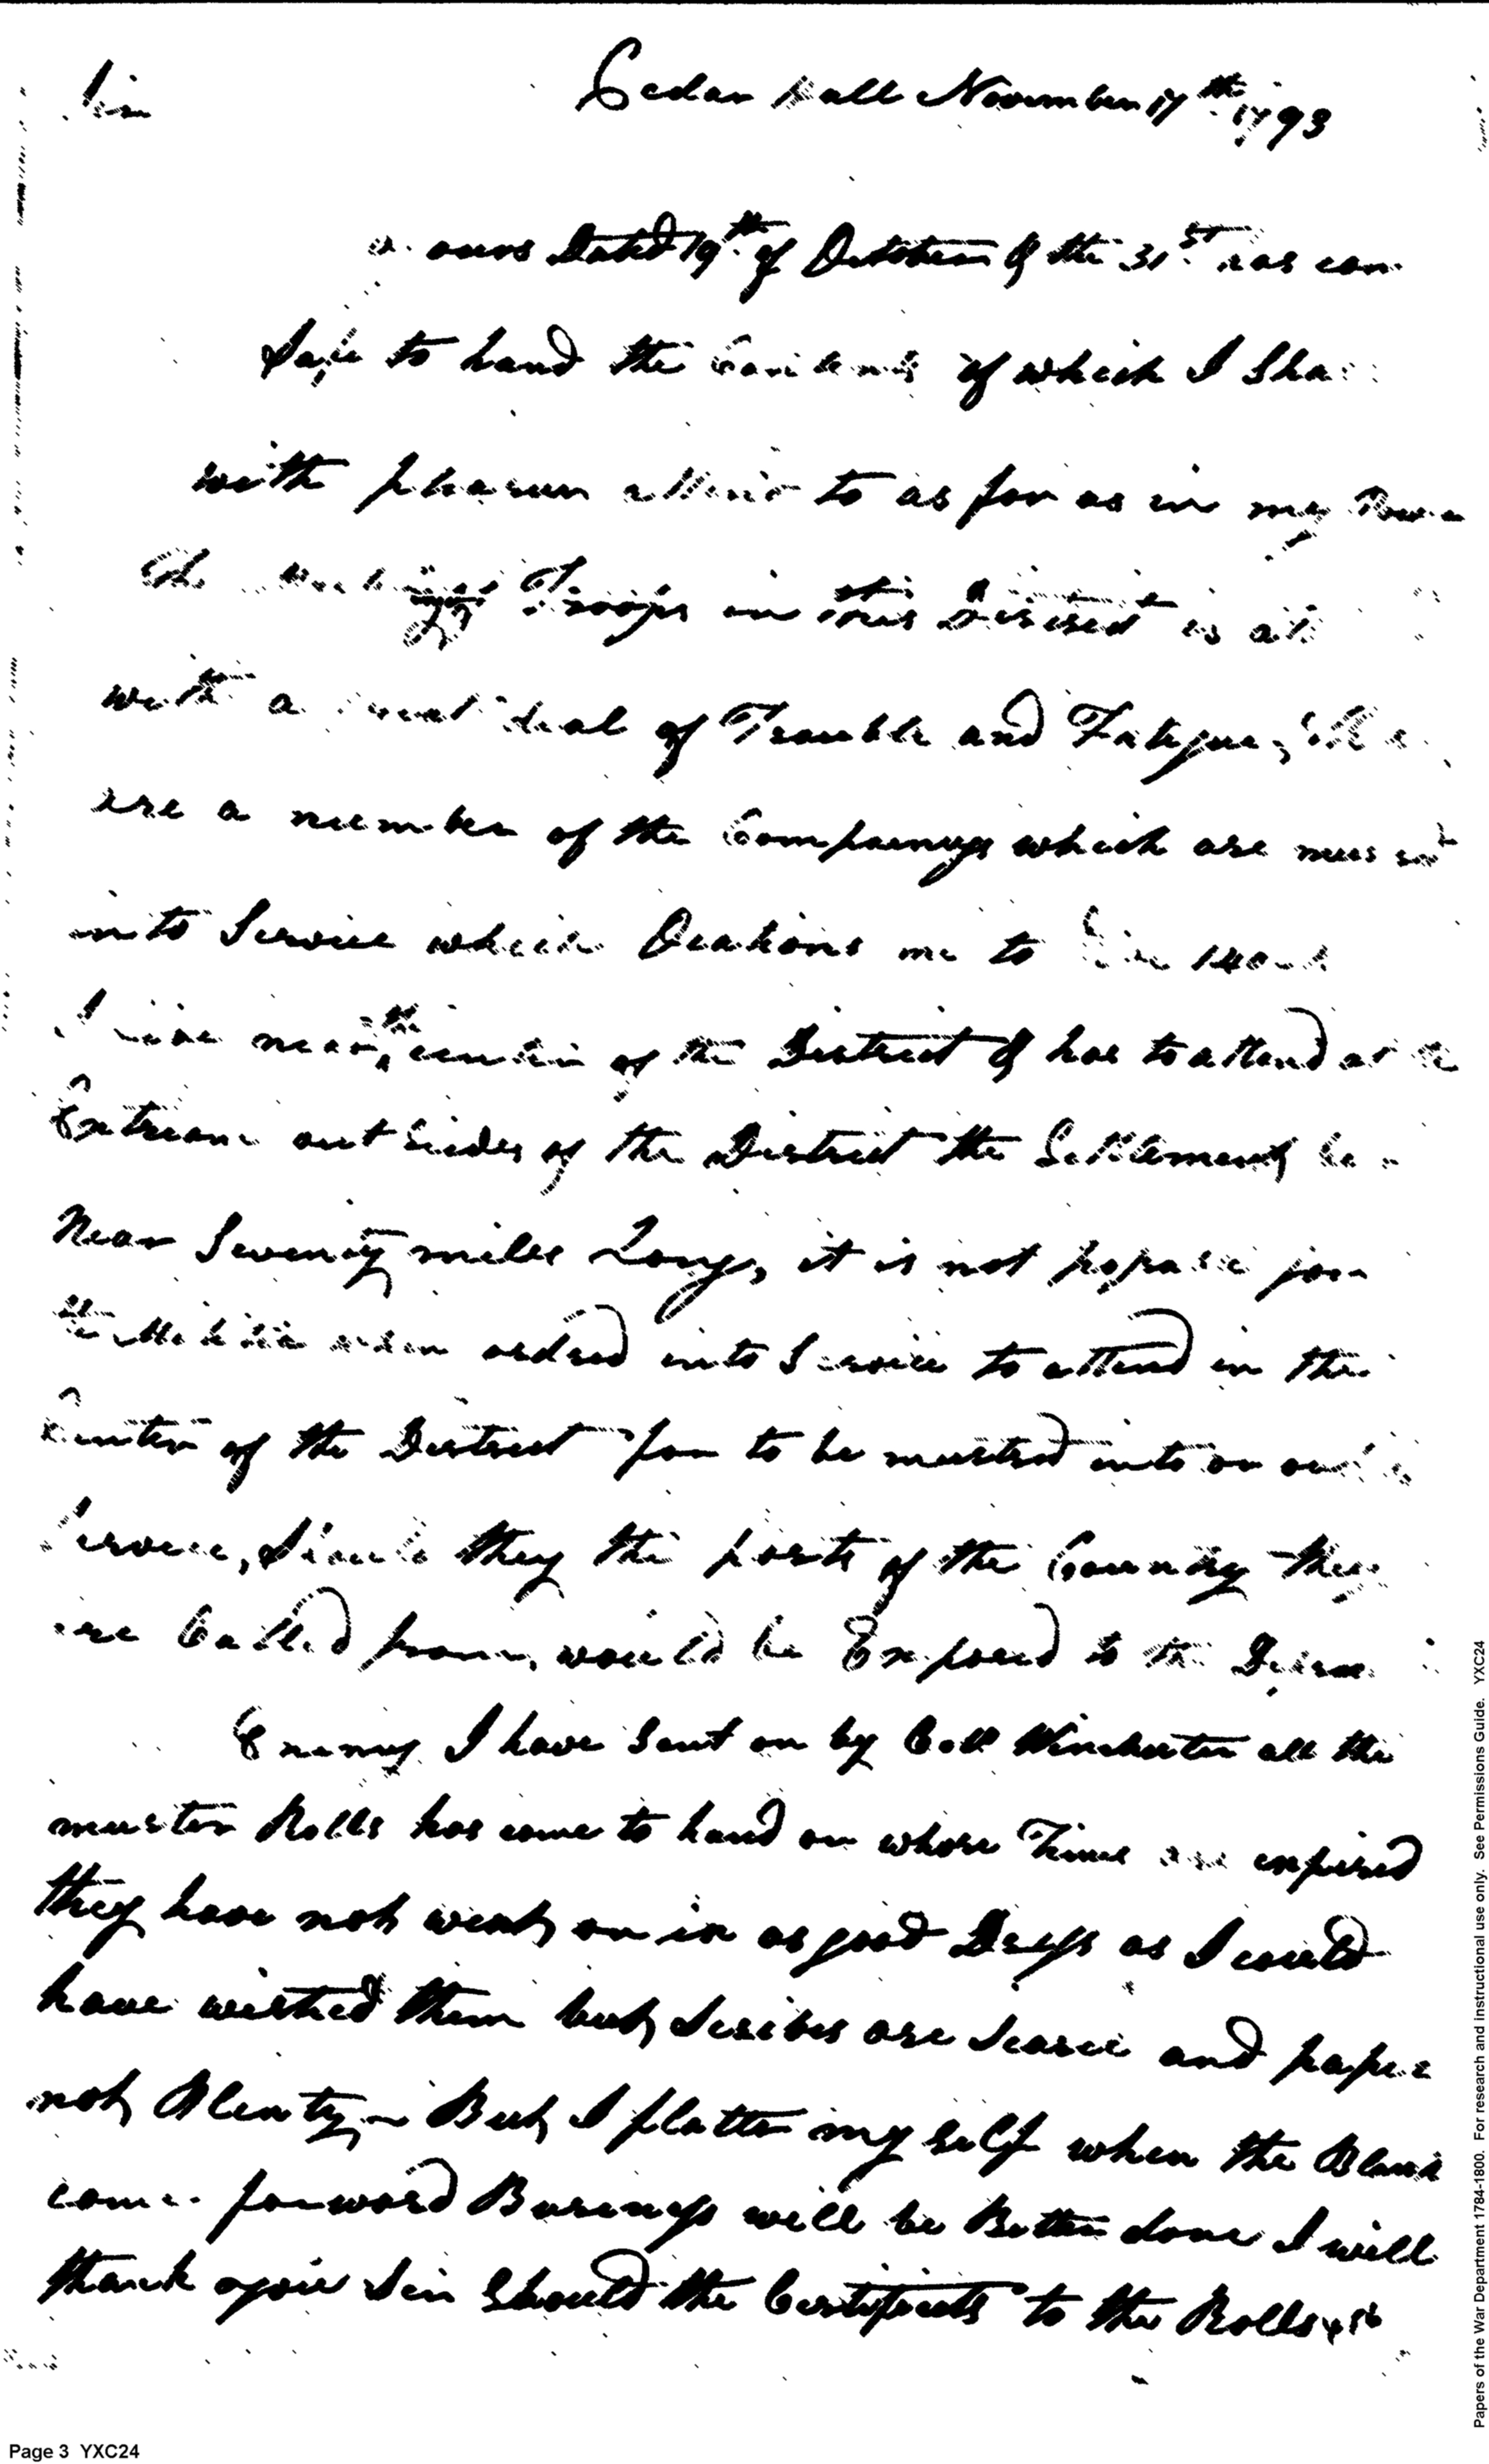 Sir Cedar Hall November 17th 1793
yours Dated 19th of October & the 31st has com
Safe to hand the of which I Shal
with pleasure attend to as far as in my Power
The of Troops in this District is at
with a great deal of Trouble and Fatigue, The
are a number of the Companys which are
into Service which Ocations me to
I live near the center of the District & has to attend at the
Extream out Sides of the District the Settlements be
Near Seventy miles Long, it is not for
the Militia when ordred into Service to attend in the
Center of the District for to be mustred into or out of
Service, Should they the parts of the Country they
are Called from, would be Exposed to the
Enemy I have Sent on by Coll Winchester all the
muster Rolls has come to hand on whose Times are expired
they have not went on in as good Dress as I could
have wished them but Scribes are Scarce and paper
not Plenty ~ But I flatter my self when the Blank
come forward Buseness will be Better done I will
thank you Sir Should the Certificats to the Rolls
Papers of the War Department 1784-1800. For research and instructional use only. See Permissions Guide. YXC24
Page 3 YXC24